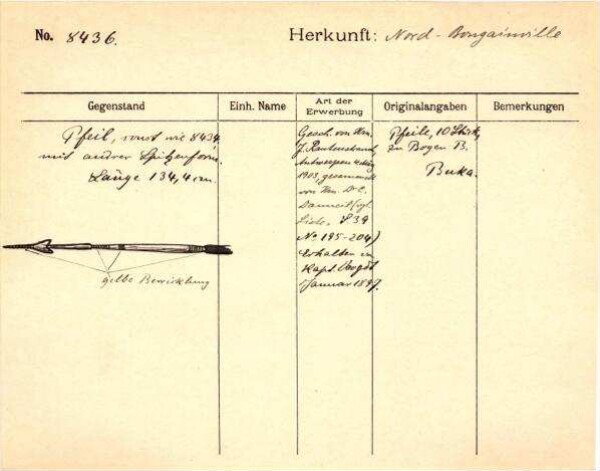 No. 8436.
Herkunft: Nord-Bougainville
Gegenstand
Einh. Name
Art der Erwerbung
Originalangaben
Bemerkungen
Pfeil, sonst wie 8434,
mit andrer Spitzenform.
Länge 134,4 cm.
gelbe Bewicklung
Gesch. von Hrn.
J. Rautenstrauch,
Antwerpen
1903, gesammelt
von Hrn.
(vgl.
Liste, S. 39
No 195-204)
Erhalten von
Kapt.
Januar 1897.
Pfeile, 10 Stück,
zu Bogen B.
Buka.